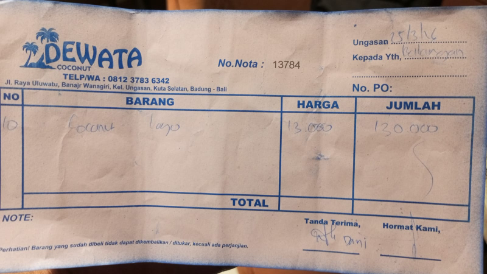 DEWATA
COCONUT
TELP/WA : 0812 3783 6342
Jl. Raya Uluwatu, Banajr Wanagiri, Kel. Ungasan, Kuta Selatan, Badung - Bali
No.Nota : 13784
Ungasan
Kepada Yth,
No. PO:
NO BARANG HARGA JUMLAH
10 Coconut 13.000 130.000
TOTAL
NOTE:
Tanda Terima, Hormat Kami,
Perhatian! Barang yang sudah dibeli tidak dapat dikembalikan / ditukar, kecuali ada perjanjian.